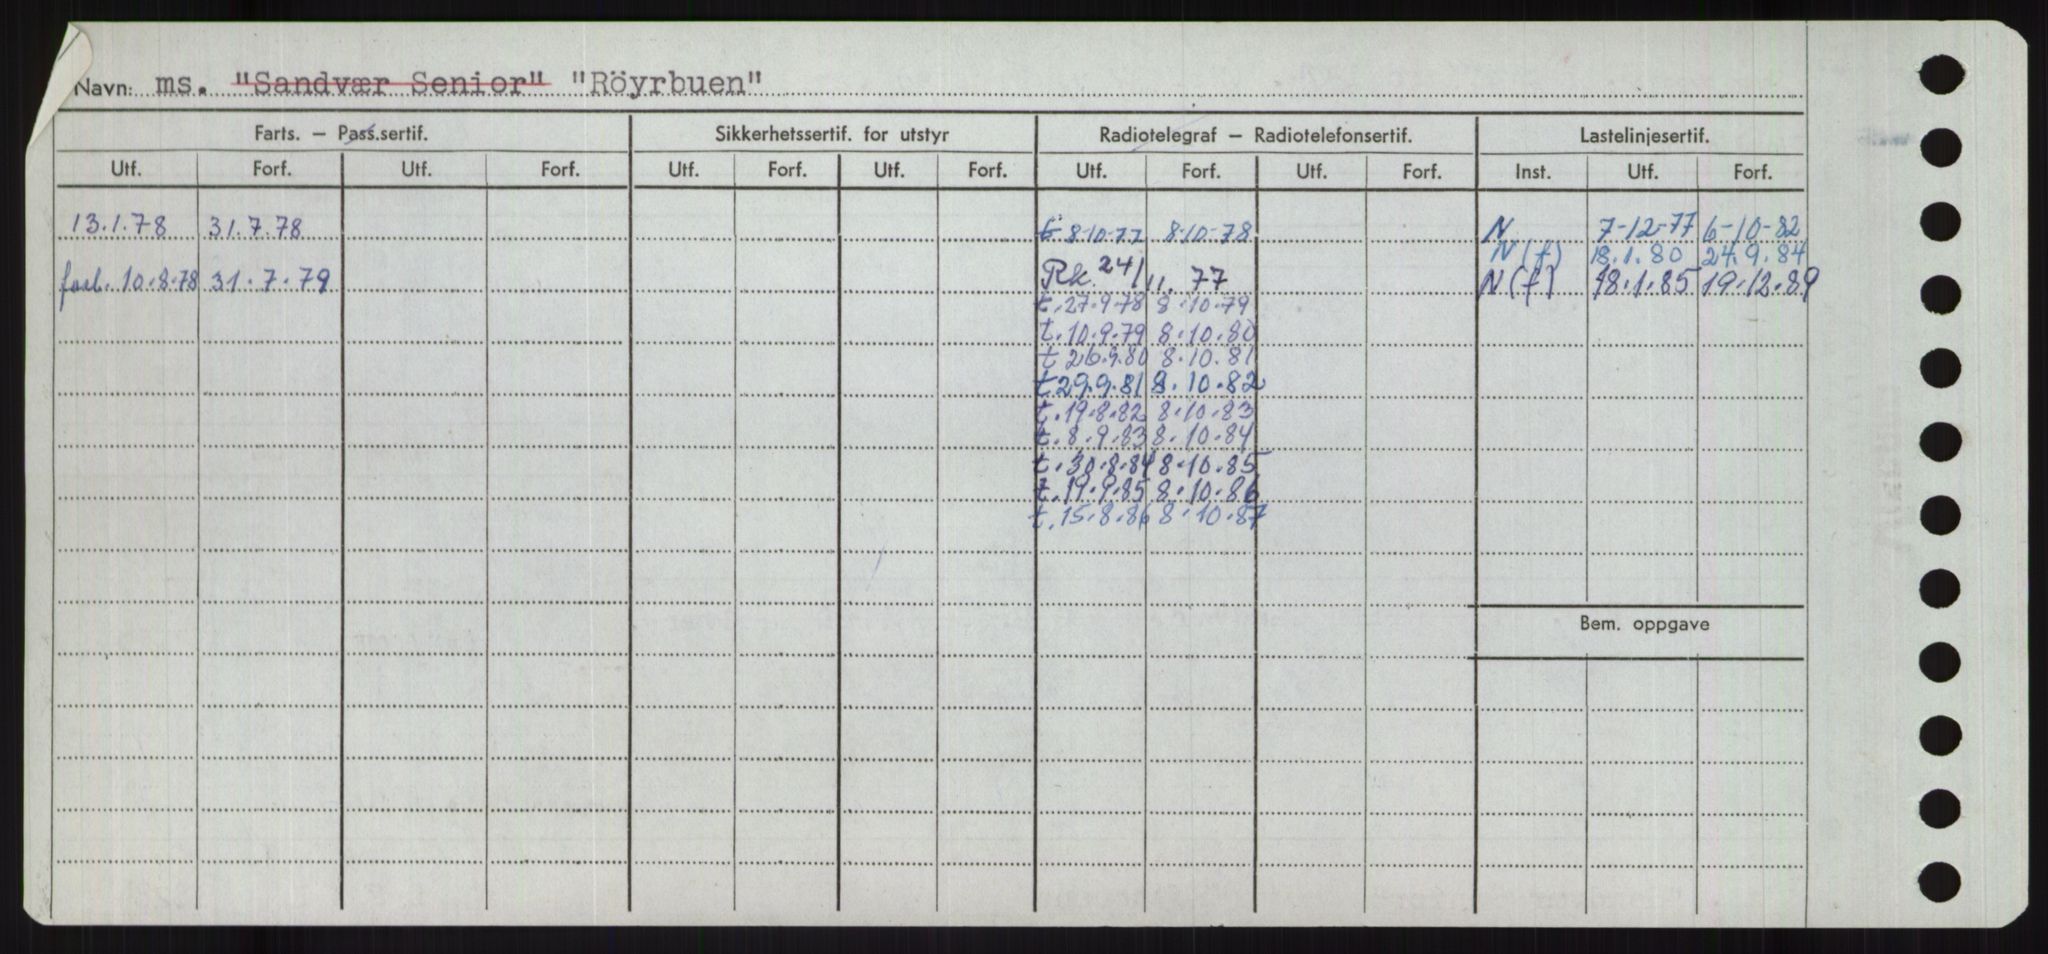 Navn: ms. "Sandvær Senior" "Röyrbuen"
Farts. — Pass.sertif. Sikkerhetssertif. for utstyr Radiotelegraf — Radiotelefonsertif. Lastelinjesertif.
Utf. Forf. Utf. Forf. Utf. Forf. Utf. Forf. Utf. Forf. Utf. Forf. Inst. Utf. Forf.
13.1.78 31.7.78 t 8-10-77 8-10-78 N 7-12-77 6-10-82
N(f) 18.1.80 24.9.84
forl. 10.8.78 31.7.79 Rk. 24/11.77 N(f) 18.1.85 19.12.89
t.27.9.78 8.10.79
t.10.9.79 8.10.80
t 26.9.80 8.10.81
t.29.9.81 8.10.82
t.19.8.82 8.10.83
t.8.9.83 8.10.84
t.30.8.84 8.10.85
t.19.9.85 8.10.86
t.15.8.86 8.10.87
Bem. oppgave